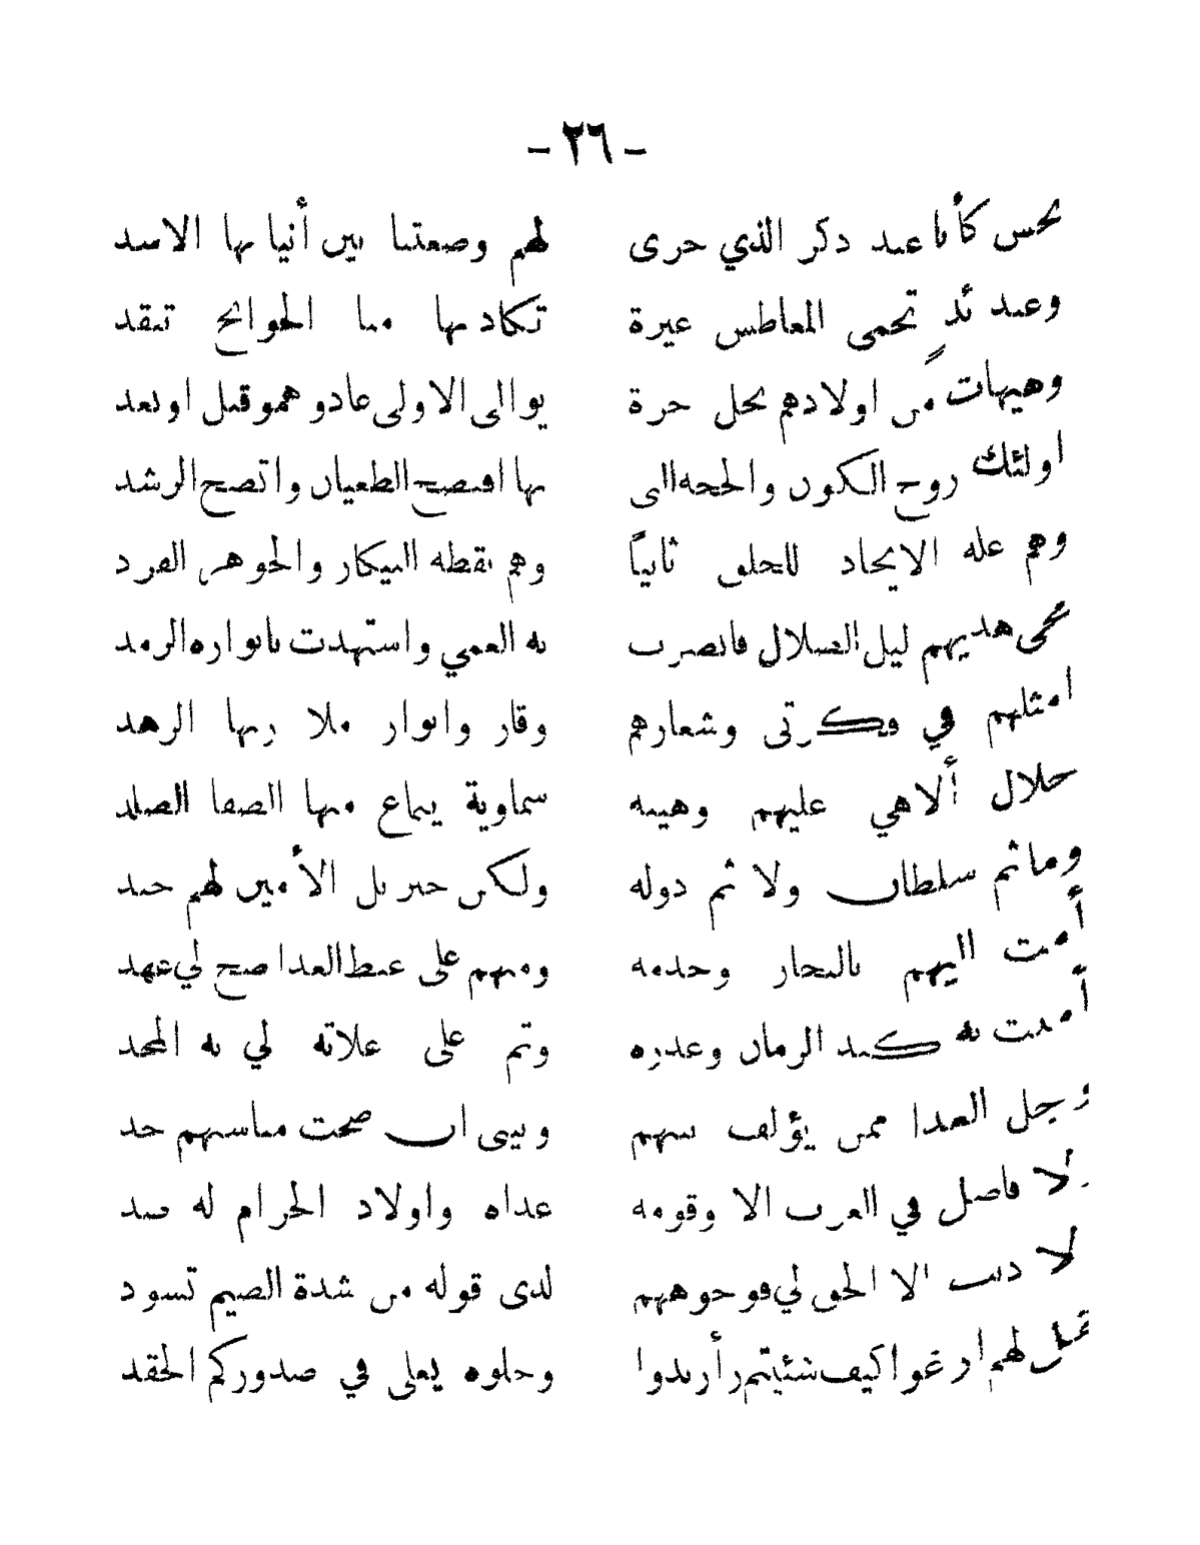 - ٢٦ -
نحس كأنا عند ذكر الذي جرى لهم وضعتنا بين أنيابها الاسد
وعندئذٍ تحمى المعاطس غيرة تكاد بها منا الجوانح تنقد
وهيهات من اولادهم نجل حرة يوالي الاولى عادوهمو قبل او بعد
اولئك روح الكون والحجة التي بها افتضح الطغيان واتضح الرشد
وهم علة الايجاد للخلق ثانياً وهم نقطة البيكار والجوهر الفرد
محى هديهم ليل الضلال فابصرت به العمي واستهدت بانواره الرمد
امثلهم في فكرتي وشعارهم وقار وانوار ملا ربها الزهد
جلال ألاهي عليهم وهيبة سماوية ينماع منها الصفا الصلد
وما ثم سلطان ولا ثم دولة ولكن جبريل الأمين لهم جند
أمت اليهم بالنجار وخدمة ومنهم على غيظ العدا صح لي عهد
أمنت به كيد الزمان وغدره وتم على علاته لي به المجد
وجل العدا ممن يؤلف بينهم وبيني ان صحت مناسبهم جد
لا فاضل في العرب الا وقومه عداه واولاد الحرام له ضد
لا ذنب الا الحق لي فوجوههم لدى قوله من شدة الضيم تسود
قل لهم ارغوا كيف شئتم وأزبدوا وخلوه يغلي في صدوركم الحقد